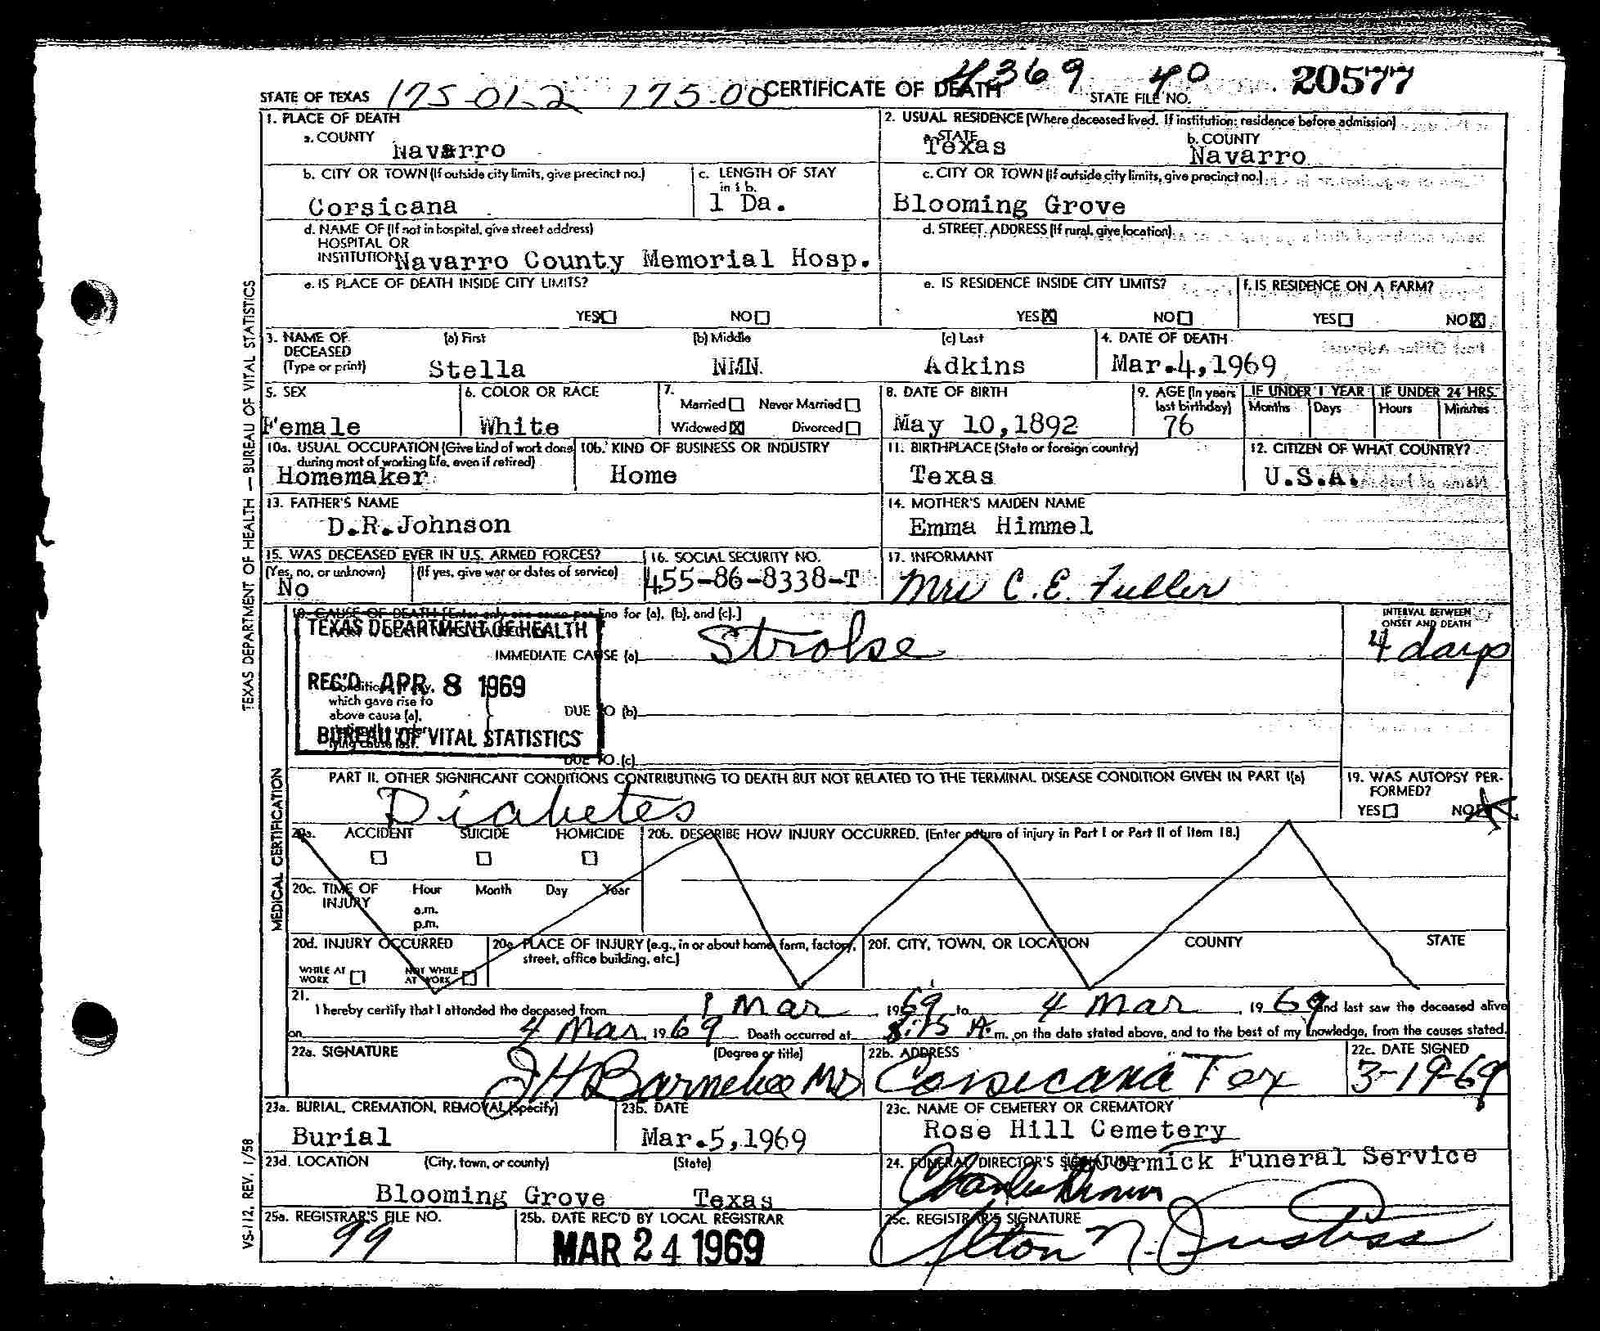 STATE OF TEXAS 175-01-2 175.00 CERTIFICATE OF DEATH 4369 40 STATE FILE NO. 20577
1. PLACE OF DEATH
a. COUNTY
Navarro
2. USUAL RESIDENCE (Where deceased lived. If institution: residence before admission)
a. STATE
Texas
b. COUNTY
Navarro
b. CITY OR TOWN (If outside city limits, give precinct no.)
Corsicana
c. LENGTH OF STAY
in 1 b.
1 Da.
c. CITY OR TOWN (If outside city limits, give precinct no.)
Blooming Grove
d. NAME OF (If not in hospital, give street address)
HOSPITAL OR
INSTITUTION Navarro County Memorial Hosp.
d. STREET ADDRESS (If rural, give location)
e. IS PLACE OF DEATH INSIDE CITY LIMITS?
YES X NO
e. IS RESIDENCE INSIDE CITY LIMITS?
YES X NO
f. IS RESIDENCE ON A FARM?
YES NO X
3. NAME OF DECEASED
(Type or print)
(a) First
Stella
(b) Middle
NMN.
(c) Last
Adkins
4. DATE OF DEATH
Mar.4,1969
5. SEX
Female
6. COLOR OR RACE
White
7.
Married Never Married
Widowed X Divorced
8. DATE OF BIRTH
May 10,1892
9. AGE (In years last birthday)
76
IF UNDER 1 YEAR
Months Days
IF UNDER 24 HRS.
Hours Minutes
10a. USUAL OCCUPATION (Give kind of work done
during most of working life, even if retired)
Homemaker
10b. KIND OF BUSINESS OR INDUSTRY
Home
11. BIRTHPLACE (State or foreign country)
Texas
12. CITIZEN OF WHAT COUNTRY?
U.S.A.
13. FATHER'S NAME
D.R.Johnson
14. MOTHER'S MAIDEN NAME
Emma Himmel
15. WAS DECEASED EVER IN U.S. ARMED FORCES?
(Yes, no, or unknown) (If yes, give war or dates of service)
No
16. SOCIAL SECURITY NO.
455-86-8338-T
17. INFORMANT
Mrs C. E. Fuller
18. CAUSE OF DEATH [Enter only one cause per line for (a), (b), and (c).]
INTERVAL BETWEEN
ONSET AND DEATH
TEXAS DEPARTMENT OF HEALTH
IMMEDIATE CAUSE (a) Stroke 4 days
REC'D APR. 8 1969
which gave rise to
above cause (a),
DUE TO (b)
BUREAU OF VITAL STATISTICS
lying cause last.
DUE TO (c)
PART II. OTHER SIGNIFICANT CONDITIONS CONTRIBUTING TO DEATH BUT NOT RELATED TO THE TERMINAL DISEASE CONDITION GIVEN IN PART I(a)
Diabetes
19. WAS AUTOPSY PERFORMED?
YES NO X
20a. ACCIDENT SUICIDE HOMICIDE
20b. DESCRIBE HOW INJURY OCCURRED. (Enter nature of injury in Part I or Part II of item 18.)
20c. TIME OF INJURY
Hour Month Day Year
a.m.
p.m.
20d. INJURY OCCURRED
WHILE AT WORK NOT WHILE AT WORK
20e. PLACE OF INJURY (e.g., in or about home, farm, factory,
street, office building, etc.)
20f. CITY, TOWN, OR LOCATION COUNTY STATE
21.
I hereby certify that I attended the deceased from 1 Mar 1969, to 4 Mar 1969 and last saw the deceased alive
on 4 Mar 1969 Death occurred at 8:15 A. m. on the date stated above, and to the best of my knowledge, from the causes stated.
22a. SIGNATURE (Degree or title)
JH Barnebee MD
22b. ADDRESS
Corsicana Tex
22c. DATE SIGNED
3-19-69
23a. BURIAL, CREMATION, REMOVAL (Specify)
Burial
23b. DATE
Mar.5,1969
23c. NAME OF CEMETERY OR CREMATORY
Rose Hill Cemetery
23d. LOCATION (City, town, or county) (State)
Blooming Grove Texas
24. FUNERAL DIRECTOR'S SIGNATURE
McCormick Funeral Service
Charles Brown
25a. REGISTRAR'S FILE NO.
99
25b. DATE REC'D BY LOCAL REGISTRAR
MAR 24 1969
25c. REGISTRAR'S SIGNATURE
Alton N. Justiss
TEXAS DEPARTMENT OF HEALTH — BUREAU OF VITAL STATISTICS
MEDICAL CERTIFICATION
VS-112, REV. 1/58